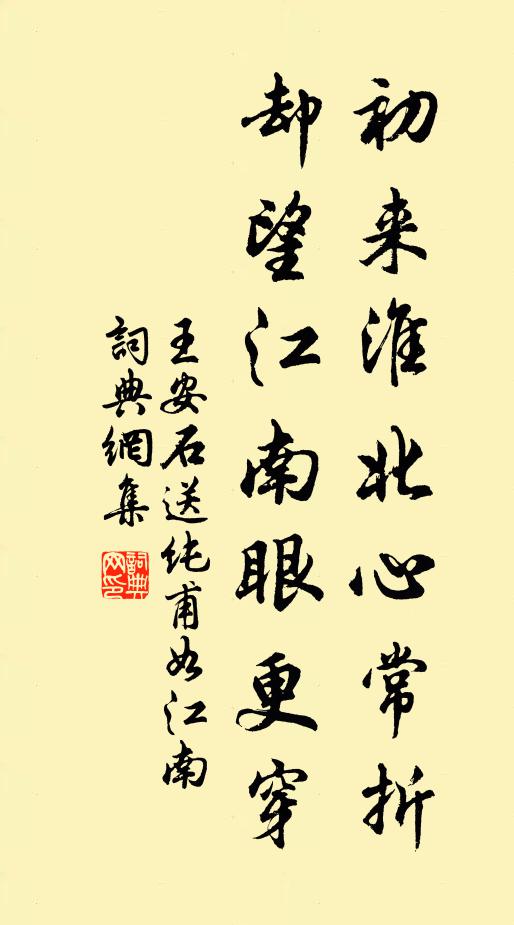 初来淮北心常折
却望江南眼更穿
王安石送纯甫如江南
詞典網集
詞典网印